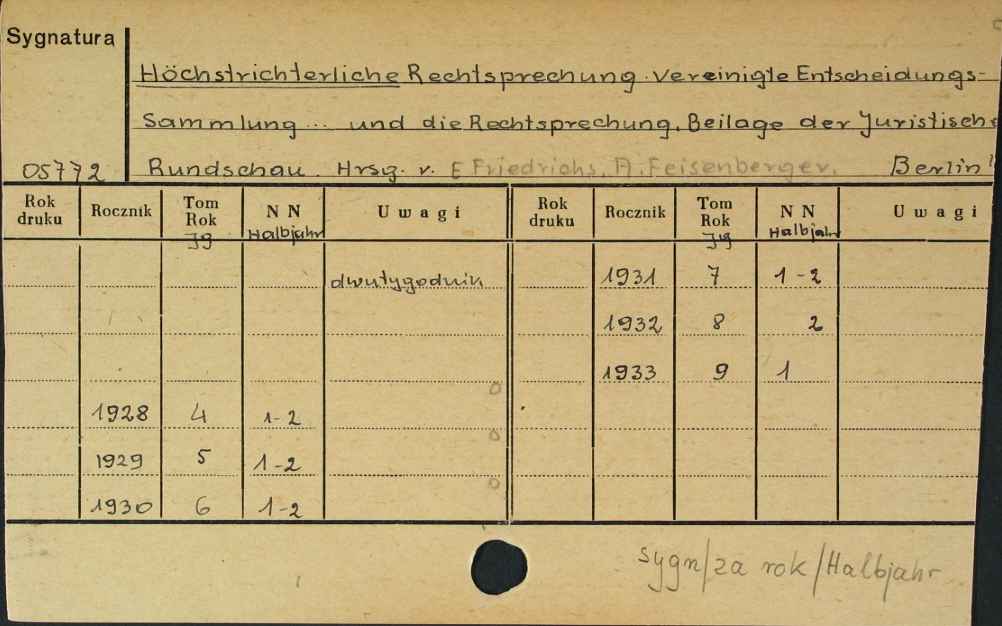 Sygnatura
Höchstrichterliche Rechtsprechung. Vereinigte Entscheidungs-
Sammlung ... und die Rechtsprechung. Beilage der Juristische
05772 Rundschau. Hrsg. v. E Friedrichs, A. Feisenberger. Berlin
Rok druku Rocznik Tom Rok NN Uwagi Rok druku Rocznik Tom Rok NN Uwagi
Jg Halbjahr Jg Halbjahr
dwutygodnik 1931 7 1-2
1932 8 2
1933 9 1
1928 4 1-2
1929 5 1-2
1930 6 1-2
sygn/za rok/Halbjahr